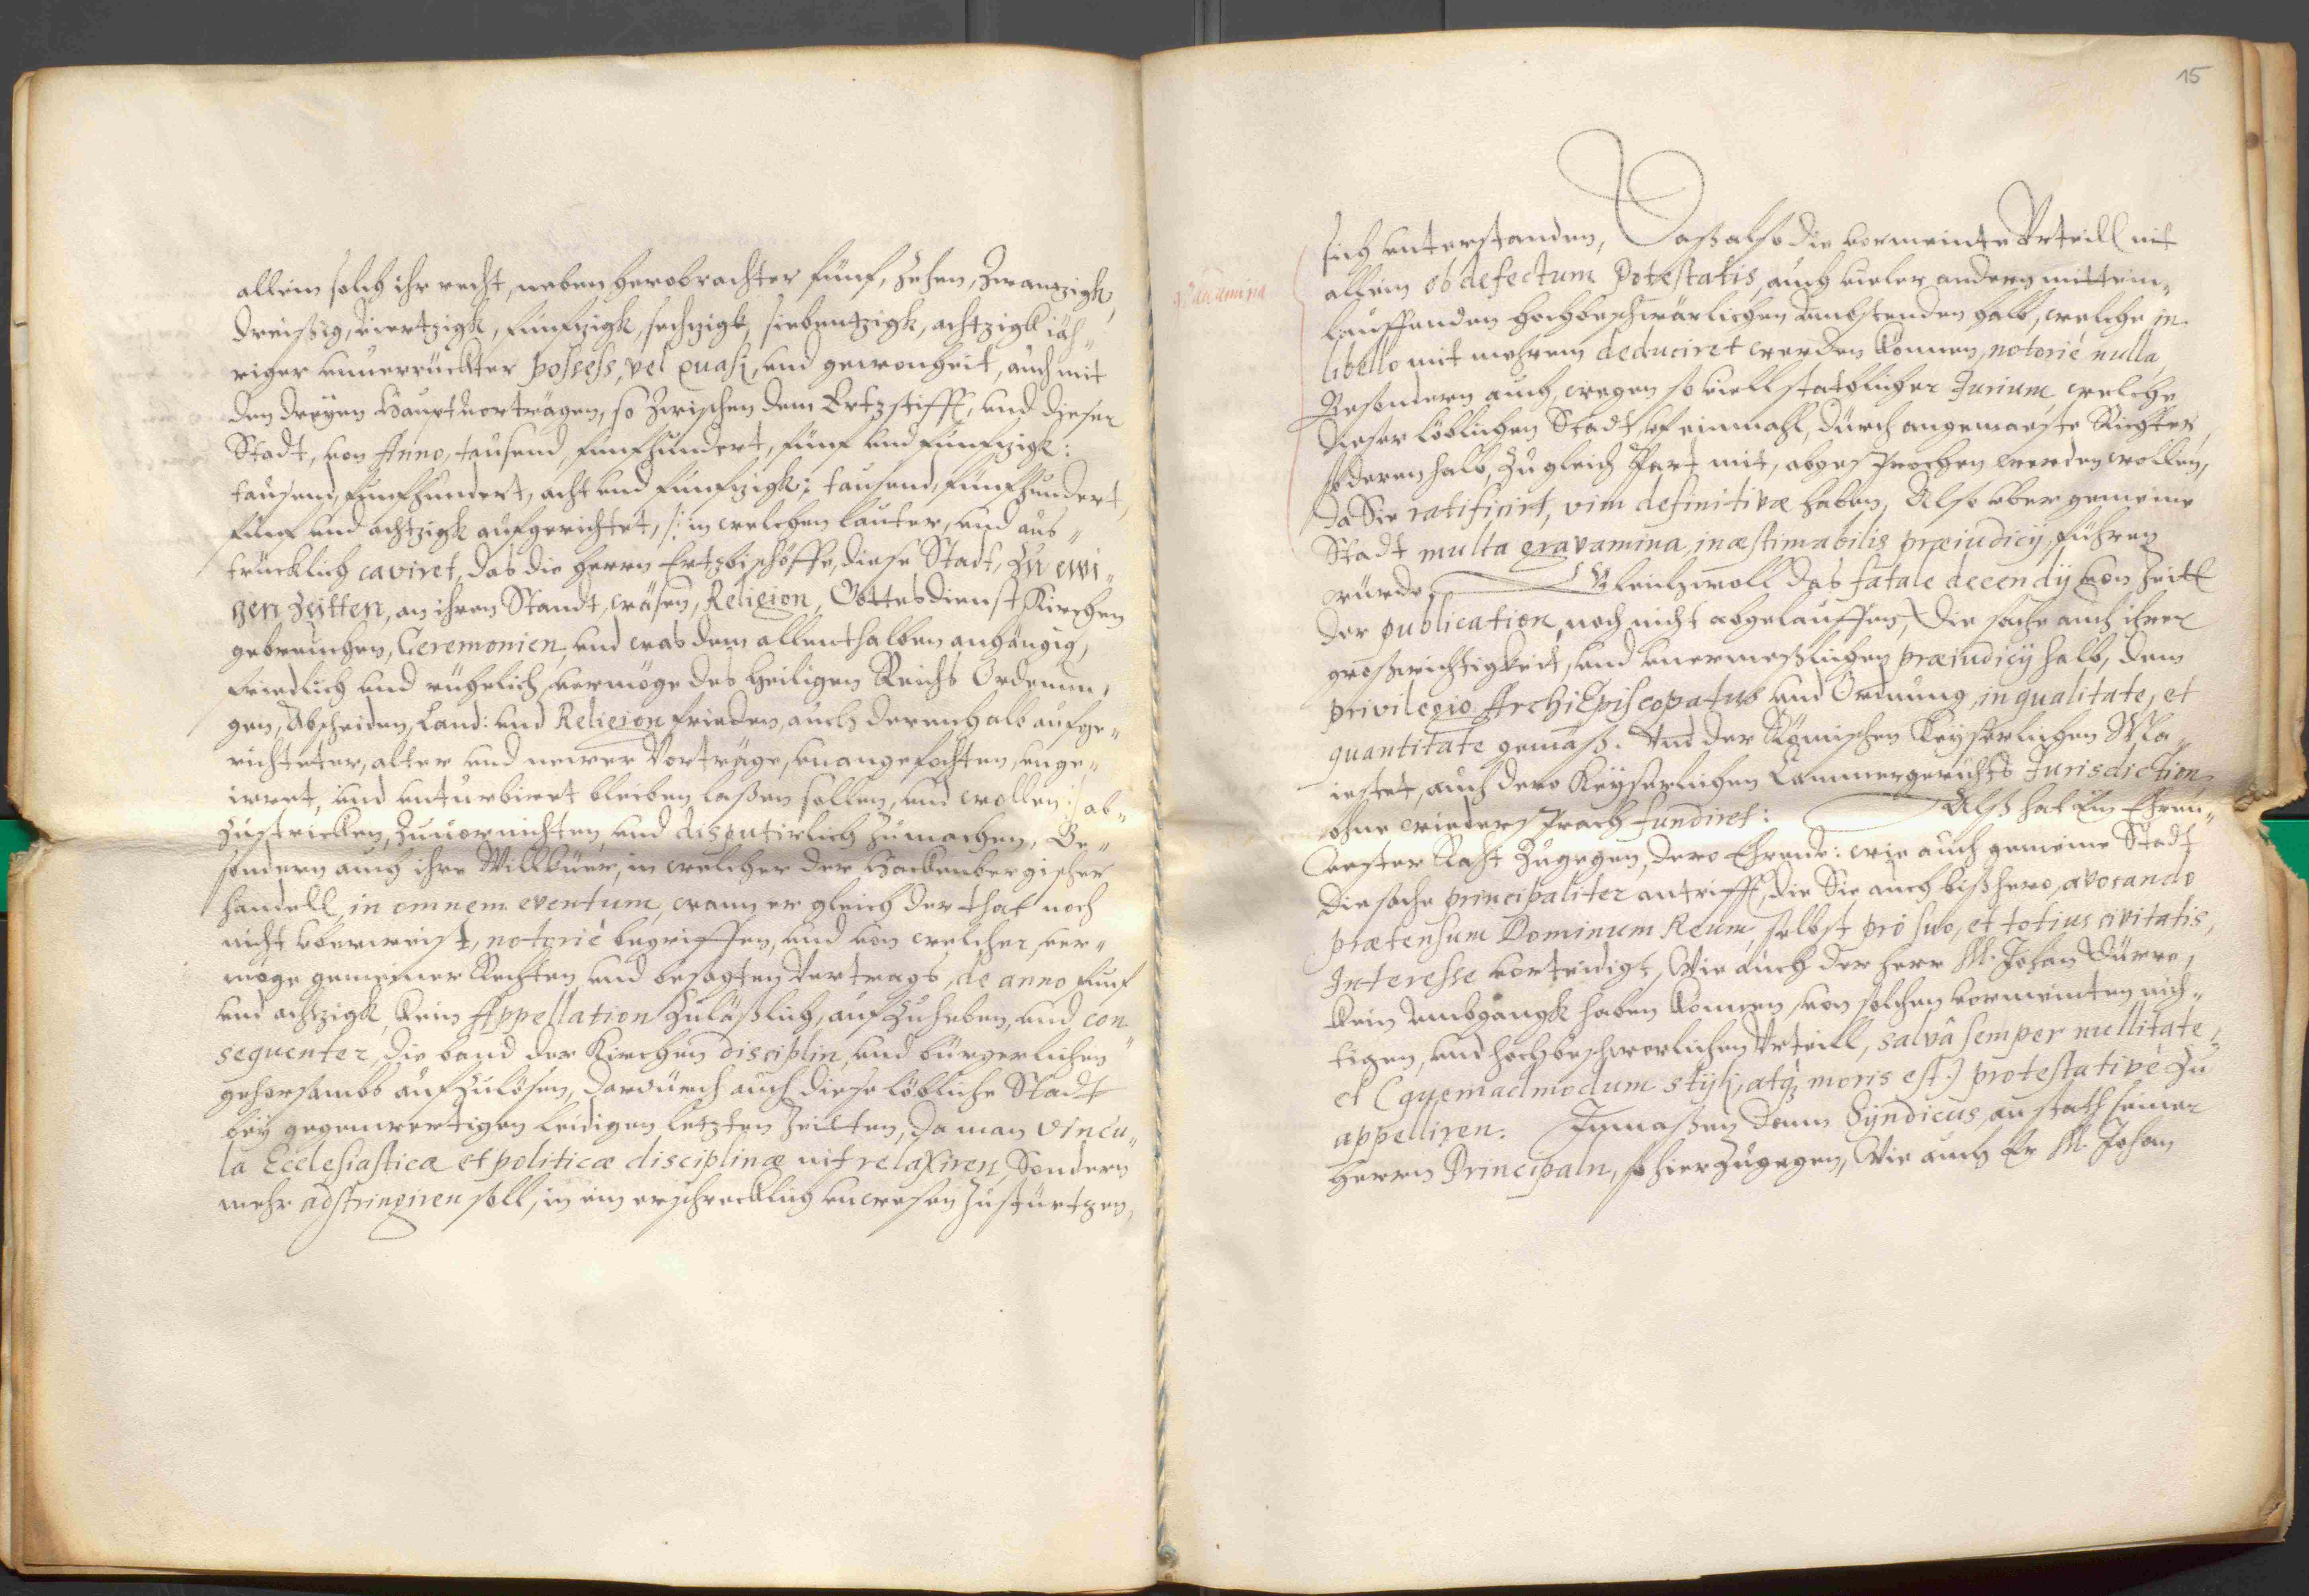 allein solch ihr recht, neben herobrachter fünf, zehen, zwantzigk,
dreissig, viertzigk, fünfzigk, sechzigk, siebentzigk, achtzigk jäh„
riger unuerrückter possess, vel quasi, und gewonheit, auch mit
den dreyen Hauptvorträgen, so zwischen dem Ertzstifft, und dieser
Stadt, von Anno, tausend, fünfhundert, fünf und fünfzigk:
tausend, fünfhundert, acht und fünfzigk: tausend, fünfhundert,
fünf und achtzigk aufgerichtet, /: in welchen lauter, und aus„
trücklich caviret, das die herrn Ertzbischöffe, diese Stadt, zu ewi„
gen zeitten, an ihren Standt, wäsen, Religion, Gottesdienst, Kirchen
gebreuchen, Ceremonien, und was dem allenthalben anhängig,
friedlich und rühelich, vermöge des Heiligen Reichs Ordenun„
gen, Abscheiden, Land: und Religion frieden, auch derenhalb aufge„
richteter, alter und newer Vorträge, unangefochten, unge„
irret, und unturbiret bleiben laßen sollen, und wollen :/ ab„
zustricken, zuuornichten, und disputirlich zumachen, Be„
sondern auch ihre Willküer, in welcher der Hackenbergischer
handell, in omnem eventum, wann er gleich der that noch
nicht uberweist, notoriè begriffen, und von welcher, ver„
möge gemeiner Rechten, und besagten Vertrags, de anno fünf
und achtzigk, kein Appellation zuläßlich, aufzuheben, und con„
sequenter, die band der Kirchen disciplin, und bürgerlichen
gehorsambs aufzulösen, dardurch auch diese löbliche Stadt
bey gegenwertigen leidigen letzten Zeitten, da man vincu„
la Ecclesiasticæ et politicæ disciplinæ nit relaxiren, Sondern
mehr adstringiren soll, in ein erschrecklich unwesen zustürtzen,
15
sich unterstanden, Daß also die vermeinte Urteill nit
Gravamina
allein ob defectum Potestatis, auch vieler andern mittein„
lauffenden hochbeschwärlichen umbstenden halb, welche in
libello mit mehrem deduciret werden können, notoriè nulla,
Besondern auch, wegen so viell statlicher Jurium, welche
dieser löblichen Stadt, uf einmahl, durch angemaeste Richter,
so derenhalb, zugleich Part mit, abgesprochen werden wollen,
da Sie ratificirt, vim definitivæ haben, Also uber gemeine
Stadt multa gravamina, inæstimabilis præiudicÿ, führen
würde, Gleichwoll das fatale decendÿ von Zeitt
der publication, noch nicht abgelauffen, Die sache auch ihrer
großwichtigkeit, und unermeßlichen præiudicÿ halb, dem
privilegio ArchiEpiscopatus und Ordnung, in qualitate, et
quantitate gemäß. Und der Römischen Keyserlichen Ma„
iestet, auch dero Keyserlichen Cammergerichts Jurisdiction
ohne wiedersprach fundiret: Alß hat Ein Ehren„
vester Raht zugegen, dero Ehrende: wie auch gemeine Stadt
die sache principaliter antrifft, die Sie auch bißhero, avocando
prætensum Dominum Reum, selbst pro suo, et totius civitatis,
Interesse vorteidigt, Wie auch der herr M. Johan
kein umbgangk haben können, von solchen vermeinten nich„
tigen, und hochbeschwerlichen Urteill, salvâ semper nullitate,
et (quemadmodum styli, atqȝ moris est.) protestativè zu
appelliren. Inmaßen dann Syndicus, an stath seiner
Herrn Principaln, so hierzugegen, Wie auch Er M. Johan